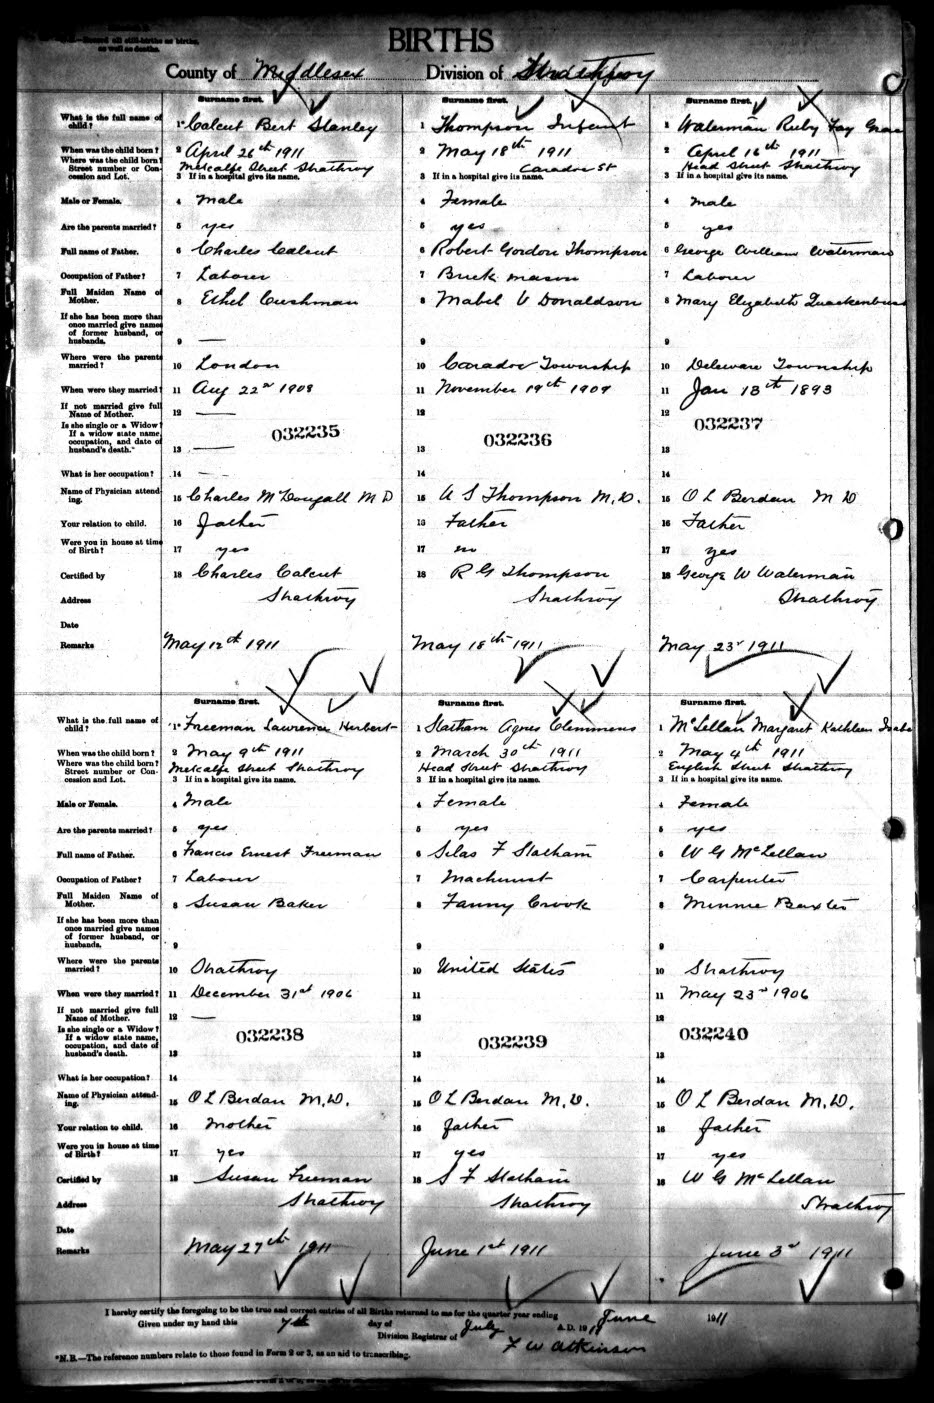 N.B.—Record all still-births as births, as well as deaths.
BIRTHS
County of Middlesex Division of Strathroy
Surname first. Surname first. Surname first.
What is the full name of child? 1* Calcut Bert Stanley 1 Thompson Infant 1 Waterman Ruby Fay Grace
When was the child born? 2 April 26th 1911 2 May 18th 1911 2 April 16th 1911
Where was the child born? Metcalfe Street Strathroy Caradoc St Head Street Strathroy
Street number or Concession and Lot. 3 If in a hospital give its name. 3 If in a hospital give its name. 3 If in a hospital give its name.
Male or Female. 4 Male 4 Female 4 Male
Are the parents married? 5 yes 5 yes 5 yes
Full name of Father. 6 Charles Calcut 6 Robert Gordon Thompson 6 George William Waterman
Occupation of Father? 7 Laborer 7 Brick mason 7 Laborer
Full Maiden Name of Mother. 8 Ethel Cushman 8 Mabel V Donaldson 8 Mary Elizabeth Quackenbush
If she has been more than once married give names of former husband, or husbands. 9 — 9 9
Where were the parents married? 10 London 10 Caradoc Township 10 Deleware Township
When were they married? 11 Aug 22nd 1908 11 November 19th 1909 11 Jan 18th 1893
If not married give full Name of Mother. 12 — 12 12
Is she single or a Widow? If a widow state name, occupation, and date of husband's death. 13 — 13 13
032235 032236 032237
What is her occupation? 14 — 14 14
Name of Physician attending. 15 Charles McDougall M D 15 A S Thompson M.D. 15 O L Berdan M D
Your relation to child. 16 father 16 Father 16 Father
Were you in house at time of Birth? 17 yes 17 no 17 yes
Certified by 18 Charles Calcut 18 R G Thompson 18 George W Waterman
Address Strathroy Strathroy Strathroy
Date
Remarks May 12th 1911 May 18th 1911 May 23rd 1911
Surname first. Surname first. Surname first.
What is the full name of child? 1* Freeman Lawrence Herbert 1 Statham Agnes Clemmens 1 McLellan Margaret Kathleen
When was the child born? 2 May 9th 1911 2 March 30th 1911 2 May 4th 1911
Where was the child born? Metcalfe Street Strathroy Head Street Strathroy English Street Strathroy
Street number or Concession and Lot. 3 If in a hospital give its name. 3 If in a hospital give its name. 3 If in a hospital give its name.
Male or Female. 4 Male 4 Female 4 Female
Are the parents married? 5 yes 5 yes 5 yes
Full name of Father. 6 Francis Ernest Freeman 6 Silas F Statham 6 W G McLellan
Occupation of Father? 7 Laborer 7 Machinist 7 Carpenter
Full Maiden Name of Mother. 8 Susan Baker 8 Fanny Crook 8 Minnie Baxter
If she has been more than once married give names of former husband, or husbands. 9 9 9
Where were the parents married? 10 Strathroy 10 United States 10 Strathroy
When were they married? 11 December 31st 1906 11 11 May 23rd 1906
If not married give full Name of Mother. 12 — 12 12
Is she single or a Widow? If a widow state name, occupation, and date of husband's death. 13 13 13
032238 032239 032240
What is her occupation? 14 14 14
Name of Physician attending. 15 O L Berdan M.D. 15 O L Berdan M.D. 15 O L Berdan M.D.
Your relation to child. 16 Mother 16 father 16 father
Were you in house at time of Birth? 17 yes 17 yes 17 yes
Certified by 18 Susan Freeman 18 S F Statham 18 W G McLellan
Address Strathroy Strathroy Strathroy
Date
Remarks May 27th 1911 June 1st 1911 June 3rd 1911
I hereby certify the foregoing to be the true and correct entries of all Births returned to me for the quarter year ending June 1911
Given under my hand this 7th day of July A.D. 1911
Division Registrar of F W Atkinson
*N.B.—The reference numbers relate to those found in Form 2 or 3, as an aid to transcribing.